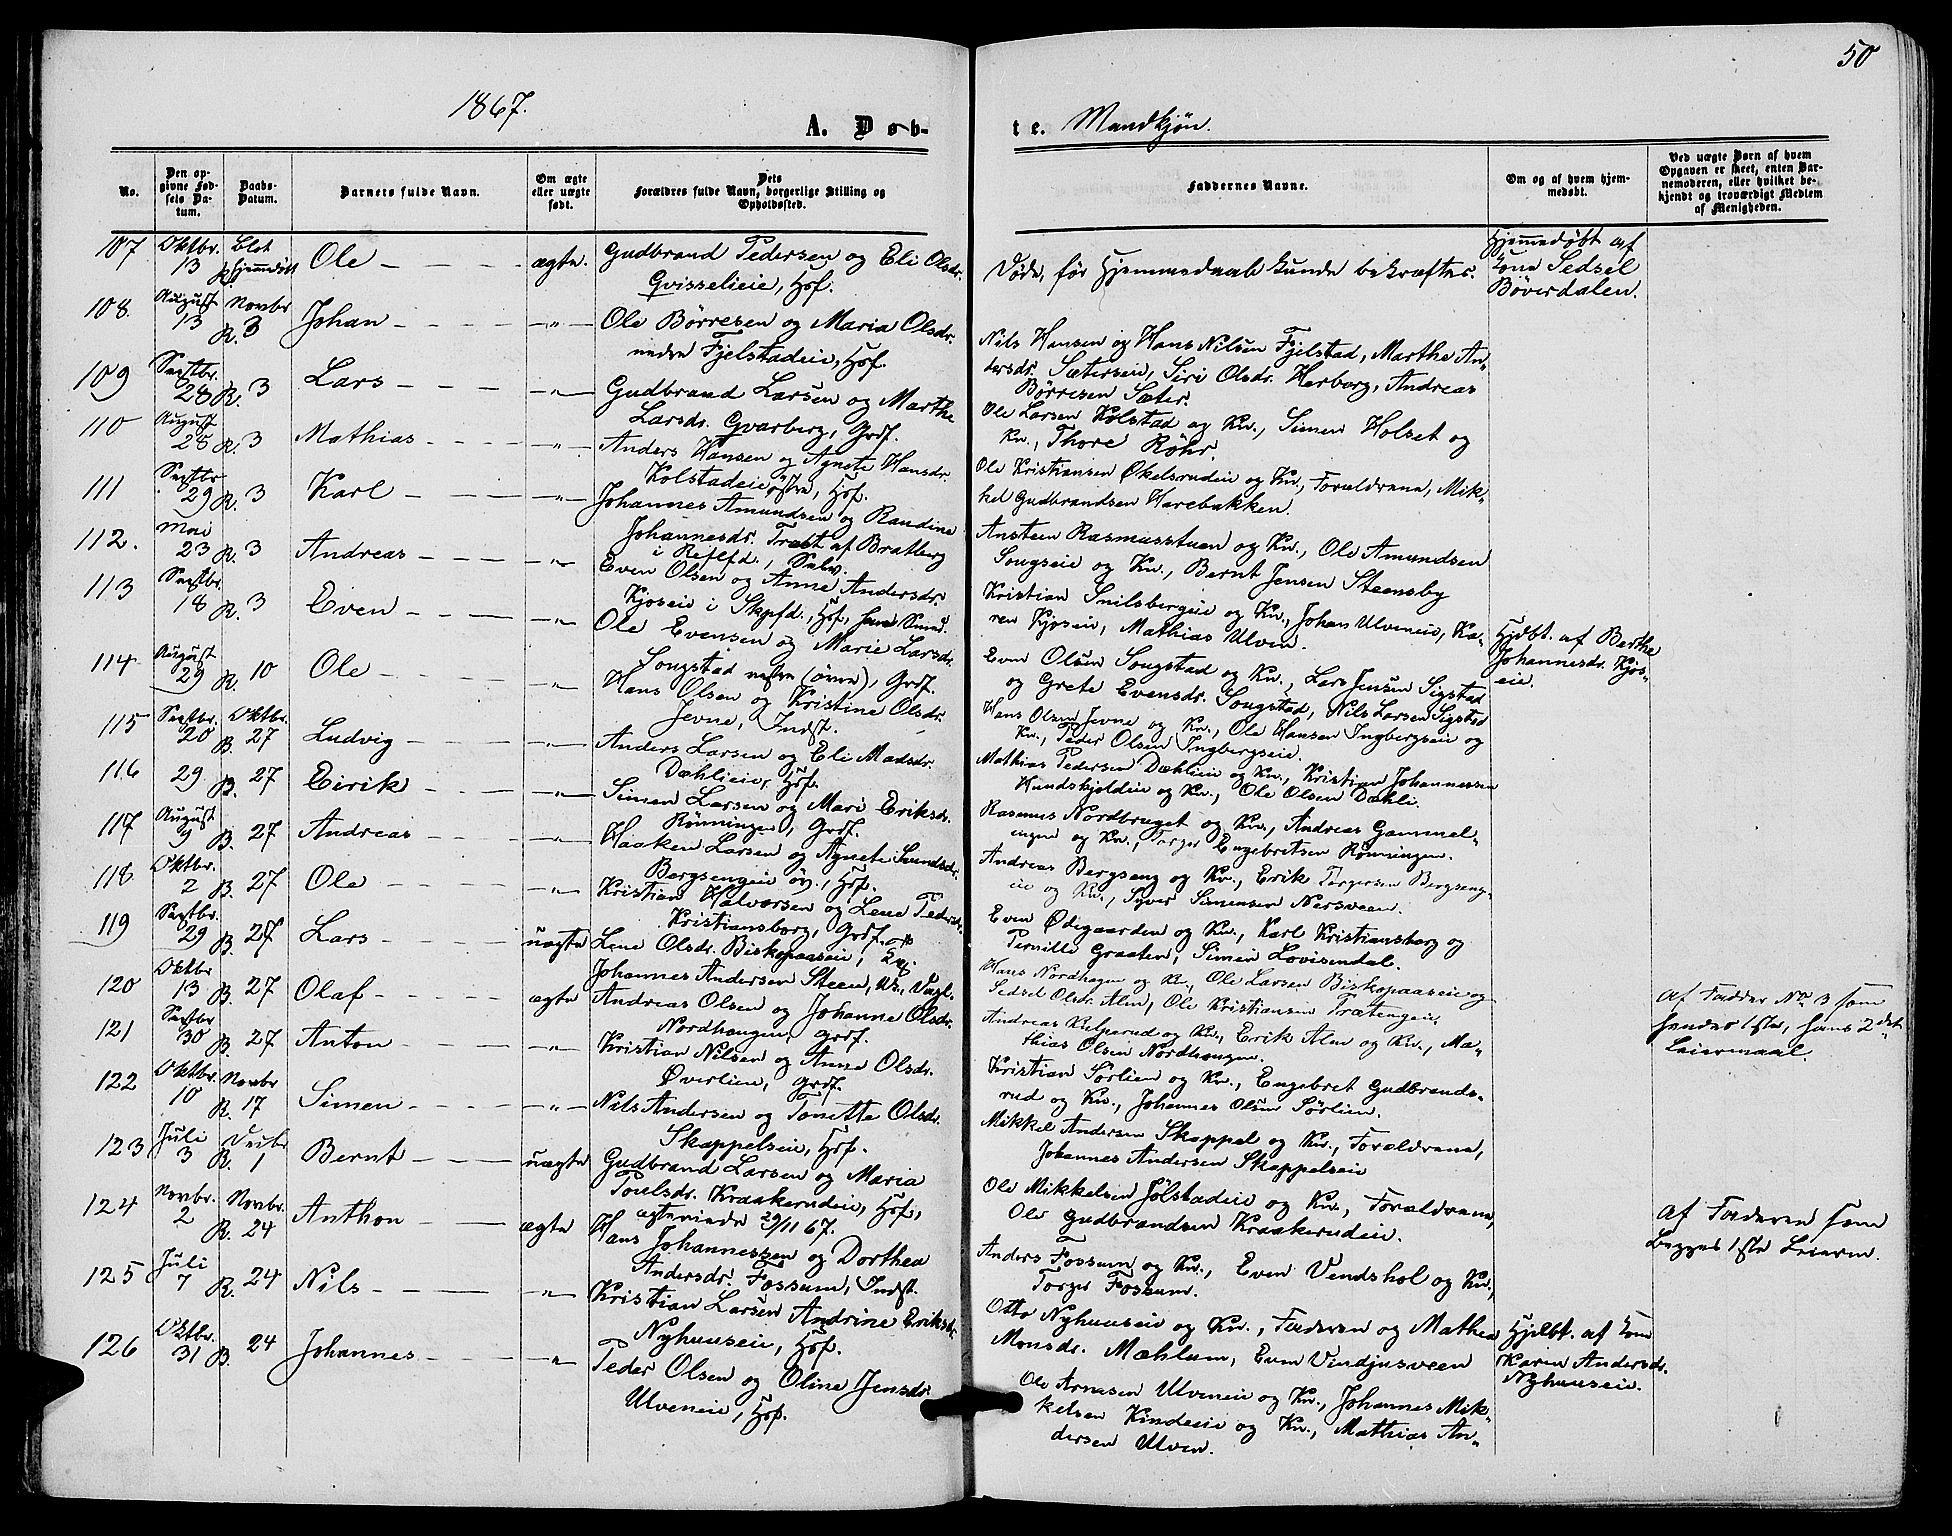 50
1867.
A. Døb-
te. Mandkjøn.
No.
Den op-
givne Fød-
sels Da-
tum.
Daabs-
Datum.
Barnets fulde Navn.
Om ægte
eller uægte
født.
Dets
Forældres fulde Navn, borgerlige Stilling og
Opholdssted.
Faddernes Navne.
Om og af hvem hjem-
medøbt.
Ved uægte Børn af hvem
Opgaven er skeet, enten Bar-
nemoderen, eller hvilket be-
kjendt og troværdigt Medlem
af Menigheden.
107 Oktbr. 13 Blot hjemmedøbt Ole ægte.
Gudbrand Pedersen og Eli Olsdr.
Gvisselieie, Hsf.
Døde, før Hjemmedaab kunde bekræftes.
Hjemmedøbt af
Kone Sedsel
Böverdalen.
108. August 13 Novbr R. 3 Johan -"-
Ole Börresen og Maria Olsdr.
nedre Fjelstadeie, Hsf.
Nils Hansen og Hans Nilsen Fjelstad, Marthe An-
dersdr. Sætereie, Siri Olsdr. Herborg, Andreas
Börresen Sæter.
109 Septbr. 28 R. 3 Lars -"-
Gudbrand Larsen og Marthe
Larsdr. Gvarberg, Grdf.
Ole Larsen Kolstad og Kn., Simen Holset og
Kn., Thore Röhr.
110 August 25 R. 3 Mathias -"-
Anders Hansen og Agnete Hansdr.
Kolstadeie östre, Hsf.
Ole Kristiansen Økelsrudeie og Kn., Forældrene, Mik-
kel Gudbrandsen Harebakken.
111 Septbr 29 R. 3 Karl -"-
Johannes Amundsen og Randine
Johannesdr. Trobt af Bratberg
i , Selv.
Ansteen Rasmusstuen og Kn., Ole Amundsen
Songseie og Kn., Bernt Jensen Steensby
112. Mai 23 R. 3 Andreas -"-
Even Olsen og Anne Andersdr.
Kjoseie i Skpfd., Hsf,
Kristian Snilsbergeie og Kn., Johan Ulveneie, Ka-
ren Kjoseie, Mathias Ulven.
Hjdbt. af Berthe
Johannesdr. Kjos-
eie.
113 Septbr. 18 R. 3 Even -"-
Ole Evensen og Marie Larsdr.
Songstad nedre (övre), Grdf.
Even Olsen Songstad og Kn., Lars Jensen Sigstad
og Grete Evensdr. Songstad, Nils Larsen Sigstad
114 August 29 R. 10 Ole -"-
Hans Olsen og Kristine Olsdr.
Jevne, Indst.
Hans Olsen Jevne og Kn., Ole Hansen Ingbergseie og
Kn., Peder Olsen Ingbergseie.
115 Septbr. 20 Oktbr. B. 27 Ludvig -"-
Anders Larsen og Eli Madsdr.
Dæhlieie, Hsf.
Mathias Pedersen Dæhlieie og Kn., Kristian Johannessen
Hundskjoldeie og Kn., Ole Olsen Dæhli.
116 29 B. 27 Eirik -"-
Simen Larsen og Mari Eriksdr.
Rönningen, Grdf.
Rasmus Nordbruget og Kn., Andreas Gammel-
ingen og Kn., Torger Engebretsen Rönningen.
117 August 9 B. 27 Andreas -"-
Haaken Larsen og Agnete Svendsdr.
Bergsengeie öv., Hsf.
Andreas Bergseng og Kn., Erik Torgersen Bergseng-
eie og Kn., Syver Simensen Nersveen.
118 Oktbr. 2 B. 27 Ole -"-
Kristian Halvorsen og Lene Pedersdr.
Kristiansborg, Grdf.
Even Ødegaarden og Kn., Karl Kristiansborg og
Pernille Graaten, Simen Lovisendal.
119 Septbr. 29 B. 27 Lars uægte
Lene Olsdr. Biskopaaseie, og
Johannes Andersen Steen,
Hans Nordhagen og K., Ole Larsen Biskopaaseie og
Sedsel Olsdr. Alm, Ole Kristiansen Trætengeie.
Af Fadder No 3 som
hendes 1ste, hans 2det
Leiermaal.
120 Oktbr 13 B. 27 Olaf ægte
Andreas Olsen og Johanne Olsdr.
Nordhaugen, Grdf.
Andreas Kulperud og Kn., Erik Alm og Kn., Ma-
thias Olsen Nordhaugen.
121 Septbr 30 B. 27 Anton -"-
Kristian Nilsen og Anne Olsdr.
Øverlien, Grdf.
Kristian Sörlien og Kn., Engebret Gudbrands-
rud og Kn., Johannes Olsen Sörlien.
122 Oktbr. 10 Novbr R. 17 Simen -"-
Nils Andersen og Tonette Olsdr.
Skappelseie, Hsf.
Mikkel Andersen Skappel og Kn., Forældrene,
Johannes Andersen Skappelseie
123 Juli 3 Decbr R. 1 Bernt uægte
Gudbrand Larsen og Maria
Poulsdr. Kraakerudeie, Hsf.,
ægteviede 29/11 67.
Ole Mikkelsen Jölstadeie og Kn., Forældrene,
Ole Gudbrandsen Kraakerudeie.
Af Faderen som
begges 1ste Leierm.
124 Novbr. 2 Novbr. R. 24 Anthon ægte
Hans Johannessen og Dorthea
Andersdr. Fossum, Indst.
Anders Fossum og Kn., Even Vendshol og Kn.,
Torger Fossum.
125 Juli 7 R. 24 Nils -"-
Kristian Larsen Andrine Eriksdr.
Nyhuuseie, Hsf.
Otto Nyhuuseie og Kn., Faderen og Mathea
Monsdr. Mæhlum, Even Vindjusveen
Hjdbt. af Kone
Karen Andersdr.
Nyhuuseie.
126 Oktbr. 31 B. 24 Johannes -"-
Peder Olsen og Oline Jensdr.
Ulveneie, Hsf.
Ole Arnesen Ulveneie og Kn., Johannes Mik-
kelsen Kindeeie og Kn., Mathias An-
dersen Ulven.